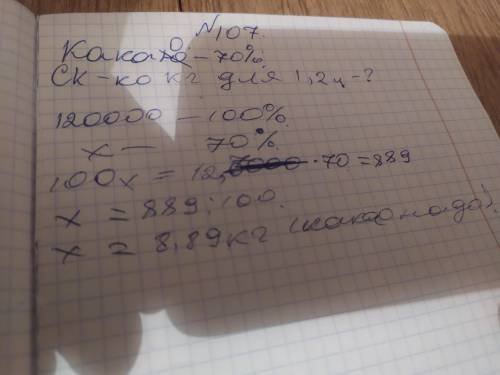 №107.
Какао - 70%
Ск-ко кг для 1,2ц-?
120000 - 100%
х - 70%
100х = 12,7 · 70 = 889
х = 889:100.
х = 8,89кг (какао надо)